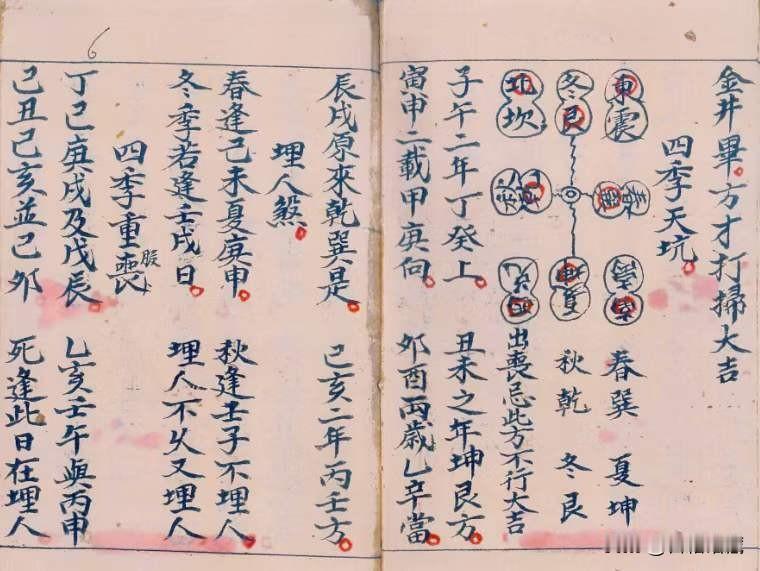 金井畢。方才打掃大吉
四季天坑。
東震
冬艮
北坎
春巽 夏坤
秋乾 冬艮
出喪忌此方不行大吉
子午二年丁癸上。 丑未之年坤艮方。
寅申二載甲庚向。 卯酉兩歲乙辛當。
6
辰戌原來乾巽是。 巳亥二年丙壬方。
埋人煞。
春逢己未夏庚申。 秋逢壬子不埋人。
冬季若逢壬戌日。 埋人不久又埋人
四季重喪服
丁巳庚戌及戊辰。 乙亥壬午與丙申
己丑己亥並己卯 死逢此日在埋人